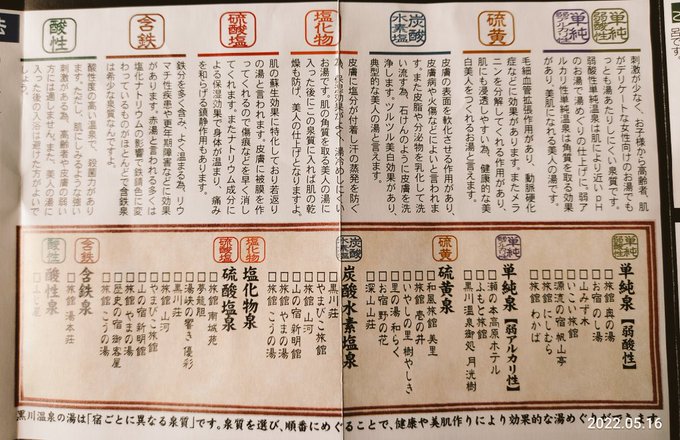 単純
弱酸性
刺激が少なく、お子様から高齢者、肌
がデリケートな女性向けのお湯でも
っとも湯あたりしにくい泉質です。
弱酸性単純温泉は肌により近いpH
のお湯で湯めぐりの仕上げに。弱ア
ルカリ性単純温泉は角質を取る効果
があり、美肌になれる美人の湯です。
単純
弱アルカリ性
硫黄
毛細血管拡張作用があり、動脈硬化
症などに効果があります。またメラ
ニンを分解してくれる作用があり、
肌にも浸透しやすい為、健康的な美
白美人をつくれるお湯と言えます。
炭酸
水素塩
皮膚の表面を軟化させる作用があり、
皮膚病や火傷などによいと言われま
す。また皮脂や分泌物を乳化して洗
い流す為、石けんのように皮膚を洗
浄します。ツルツル美白効果があり、
典型的な美人の湯と言えます。
塩化物
皮膚に塩分が付着し汗の蒸発を防ぐ
為、保温効果がよく、湯冷めしにくい
お湯です。肌の角質を取る美人の湯に
入った後にこの泉質に入れば肌の乾
燥も防げ、美人の仕上げとなりますよ。
硫酸塩
肌の蘇生効果に特化しており若返り
の湯と言われます。皮膚に被膜を作
ってくれるので傷痕などを早く消し
てくれます。またナトリウム成分に
よる保湿効果で身体が温まり、痛み
を和らげる鎮静作用もあります。
含鉄
鉄分を多く含み、よく温まる為、リウ
マチ性疾患や更年期障害などに効果
があります。赤湯と言われる多くは
塩化ナトリウムの影響で鉄錆色に変
わっているものがほとんどで含鉄泉
は希少な泉質なんですよ。
酸性
酸性度の高い温泉で、殺菌力があり
ます。ただし、肌にしみるような強い
刺激がある為、高齢者や皮膚の弱い
方には適しません。また、美人の湯に
入った後の入浴は避けた方がよいで
しょう。
単純
弱酸性
単純泉【弱酸性】
□旅館 奥の湯
□お宿 のし湯
□山みず木
□いこい旅館
□源流の宿 帆山亭
□旅館 にしむら
□旅館 わかば
単純
弱アルカリ性
単純泉【弱アルカリ性】
□瀬の本高原ホテル
□ふもと旅館
□黒川温泉御処 月洸樹
硫黄
硫黄泉
□和風旅館 美里
□旅館 壱の井
□いやしの里 樹やしき
□里の湯 和らく
□お宿 野の花
□深山山荘
炭酸
水素塩
炭酸水素塩泉
□黒川荘
□やまびこ旅館
□旅館 山河
□山の宿 新明館
□旅館 やまの湯
□旅館 こうの湯
塩化物
硫酸塩
塩化物泉
硫酸塩泉
□旅館 南城苑
□夢龍胆
□湯峡の響き 優彩
□黒川荘
□旅館 山河
□やまびこ旅館
□山の宿 新明館
□旅館 やまの湯
□歴史の宿 御客屋
□旅館 こうの湯
含鉄
含鉄泉
□旅館 湯本荘
酸性
酸性泉
黒川温泉の湯は「宿ごとに異なる泉質」です。泉質を選び、順番にめぐることで、健康や美肌作りにより効果的な湯めぐりができます。
2022.05.16